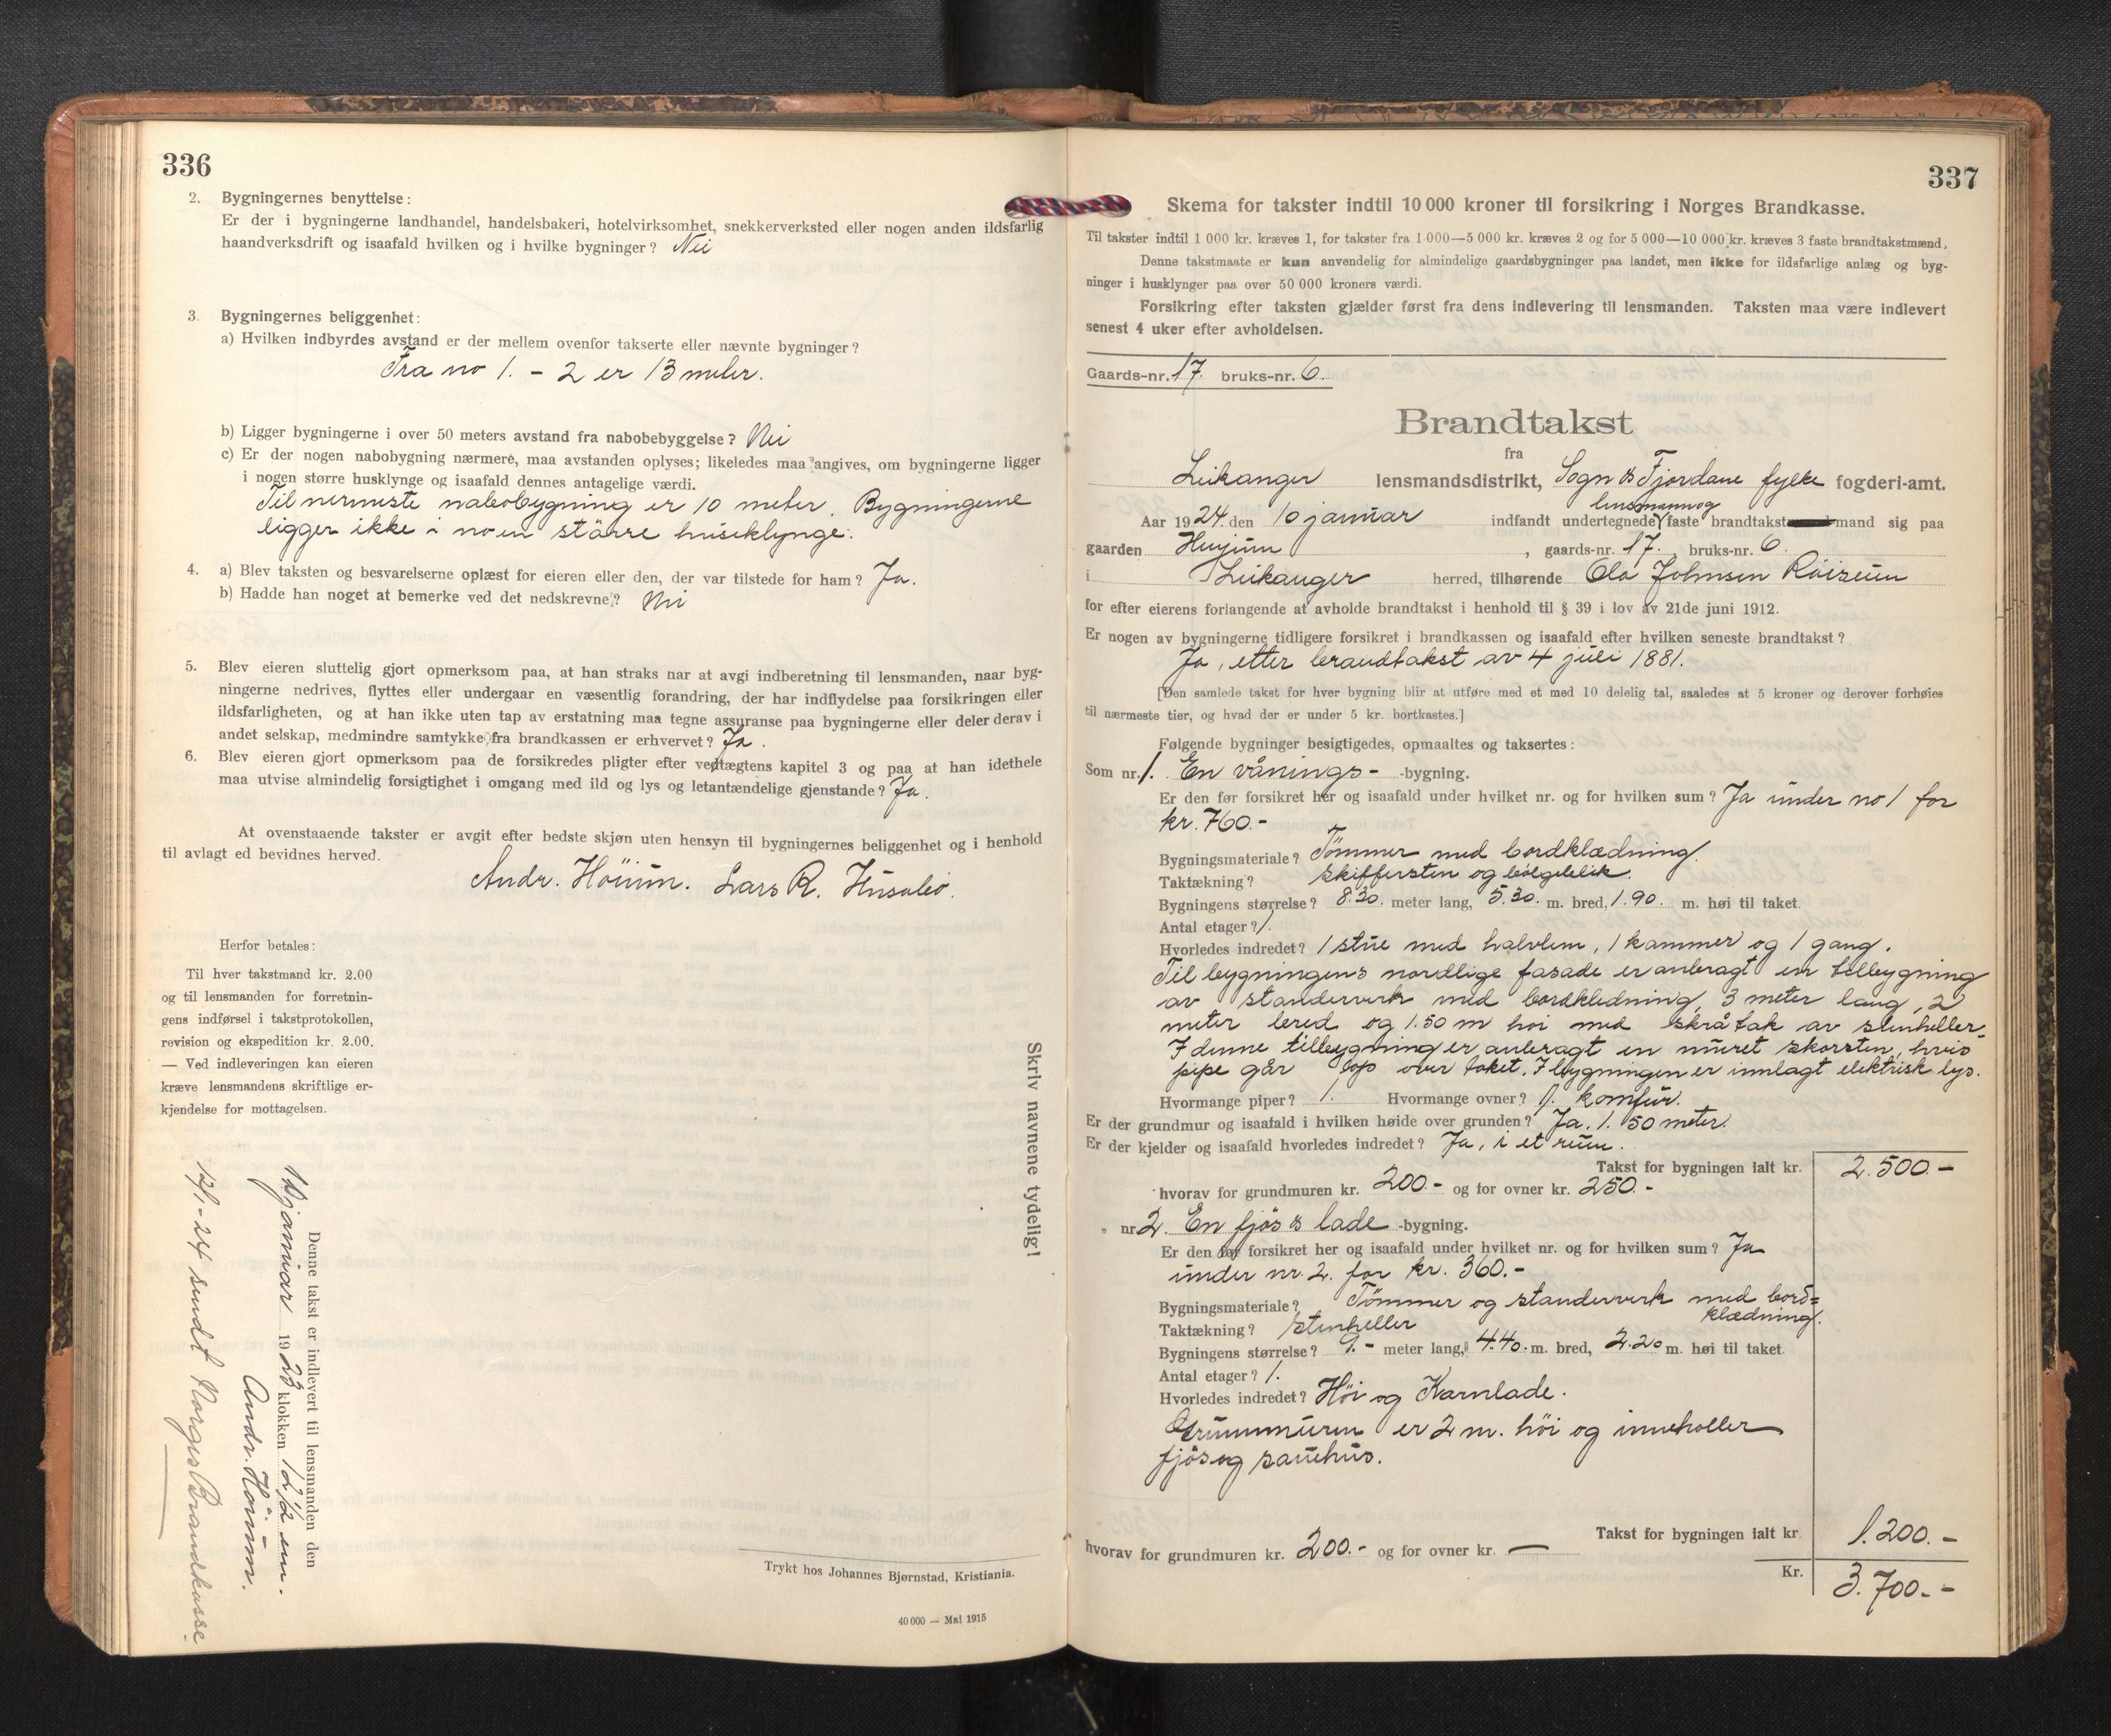 336
2. Bygningernes benyttelse:
Er der i bygningerne landhandel, handelsbakeri, hotelvirksomhet, snekkerverksted eller nogen anden ildsfarlig
haandverksdrift og isaafald hvilken og i hvilke bygninger? Nei
3. Bygningernes beliggenhet:
a) Hvilken indbyrdes avstand er der mellem ovenfor takserte eller nævnte bygninger?
Fra no 1. - 2 er 13 meter.
b) Ligger bygningerne i over 50 meters avstand fra nabobebyggelse? Nei
c) Er der nogen nabobygning nærmere, maa avstanden oplyses; likeledes maa angives, om bygningerne ligger
i nogen større husklynge og isaafald dennes antagelige værdi.
Til nermeste nabobygning er 10 meter. Bygningerne
ligger ikke i noen större huseklynge.
4. a) Blev taksten og besvarelserne oplæst for eieren eller den, der var tilstede for ham? Ja.
b) Hadde han noget at bemerke ved det nedskrevne? Nei
5. Blev eieren sluttelig gjort opmerksom paa, at han straks nar at avgi indberetning til lensmanden, naar byg-
ningerne nedrives, flyttes eller undergaar en væsentlig forandring, der har indflydelse paa forsikringen eller
ildsfarligheten, og at han ikke uten tap av erstatning maa tegne assuranse paa bygningerne eller deler derav i
andet selskap, medmindre samtykke fra brandkassen er erhvervet? Ja.
6. Blev eieren gjort opmerksom paa de forsikredes pligter efter vedtægtens kapitel 3 og paa at han idethele
maa utvise almindelig forsigtighet i omgang med ild og lys og letantændelige gjenstande? Ja.
At ovenstaaende takster er avgit efter bedste skjøn uten hensyn til bygningernes beliggenhet og i henhold
til avlagt ed bevidnes herved.
Andr. Höium. Lars R. Husabö.
Herfor betales:
Til hver takstmand kr. 2.00
og til lensmanden for forretnin-
gens indførsel i takstprotokollen,
revision og ekspedition kr. 2.00.
— Ved indleveringen kan eieren
kræve lensmandens skriftlige er-
kjendelse for mottagelsen.
Skriv navnene tydelig!
Denne takst er indlevert til lensmanden den
12 januar 1923 klokken 12½ em.
Andr. Höium.
12/1-24 sendt Norges Brandkasse.
Trykt hos Johannes Bjørnstad, Kristiania.
40 000 — Mai 1915
337
Skema for takster indtil 10 000 kroner til forsikring i Norges Brandkasse.
Til takster indtil 1 000 kr. kræves 1, for takster fra 1 000—5 000 kr. kræves 2 og for 5 000—10 000 kr. kræves 3 faste brandtakstmænd.
Denne takstmaate er kun anvendelig for almindelige gaardsbygninger paa landet, men ikke for ildsfarlige anlæg og byg-
ninger i husklynger paa over 50 000 kroners værdi.
Forsikring efter taksten gjælder først fra dens indlevering til lensmanden. Taksten maa være indlevert
senest 4 uker efter avholdelsen.
Gaards-nr. 17. bruks-nr. 6.
Brandtakst
fra
Leikanger lensmandsdistrikt, Sogn & Fjordane fylke fogderi-amt.
lensmann og
Aar 1924. den 10 januar indfandt undertegnede faste brandtakstmand sig paa
gaarden Henjum, gaards-nr. 17. bruks-nr. 6.
i Leikanger herred, tilhørende Ola Johnsen Röiseum
for efter eierens forlangende at avholde brandtakst i henhold til § 39 i lov av 21de juni 1912.
Er nogen av bygningerne tidligere forsikret i brandkassen og isaafald efter hvilken seneste brandtakst?
Ja, etter brandtakst av 4 juli 1881.
[Den samlede takst for hver bygning blir at utføre med et med 10 delelig tal, saaledes at 5 kroner og derover forhøies
til nærmeste tier, og hvad der er under 5 kr. bortkastes.]
Følgende bygninger besigtigedes, opmaaltes og taksertes:
Som nr. 1. En vånings- -bygning.
Er den før forsikret her og isaafald under hvilket nr. og for hvilken sum? Ja under no 1 for
kr. 760.-
Bygningsmateriale? Tömmer med bordklædning.
Taktækning? Skiffersten og bölgeblik.
Bygningens størrelse? 8.30. meter lang, 5.30. m. bred, 1.90. m. høi til taket.
Antal etager? 1.
Hvorledes indredet? 1 stue med halvlem, 1 kammer og 1 gang.
Til bygningens nordlige fasade er anbragt en tilbygning
av standerverk med bordkledning, 3 meter lang, 2
meter bred og 1.50 m höi med skråtak av stenheller.
I denne tilbygning er anbragt en muret skorsten, hvis
pipe går op over taket. I bygningen er innlagt elektrisk lys.
Hvormange piper? 1. Hvormange ovner? 1. komfur.
Er der grundmur og isaafald i hvilken høide over grunden? Ja. 1.50 meter.
Er der kjelder og isaafald hvorledes indredet? Ja, i et rum.
Takst for bygningen ialt kr. 2.500.-
hvorav for grundmuren kr. 200.- og for ovner kr. 250.-
„ nr. 2. En fjös & lade -bygning.
Er den før forsikret her og isaafald under hvilket nr. og for hvilken sum? Ja
under nr. 2. for kr. 360.-
Bygningsmateriale? Tömmer og standerverk med bord=
klædning.
Taktækning? Stenheller
Bygningens størrelse? 9.- meter lang, 4.40. m. bred, 2.20 m. høi til taket.
Antal etager? 1.
Hvorledes indredet? Höi og Karnlade.
Grunnmuren er 2 m. höi og inneholler
fjös og sauehus.
Takst for bygningen ialt kr. 1.200.-
hvorav for grundmuren kr. 200.- og for ovner kr. —
Kr. 3.700.-